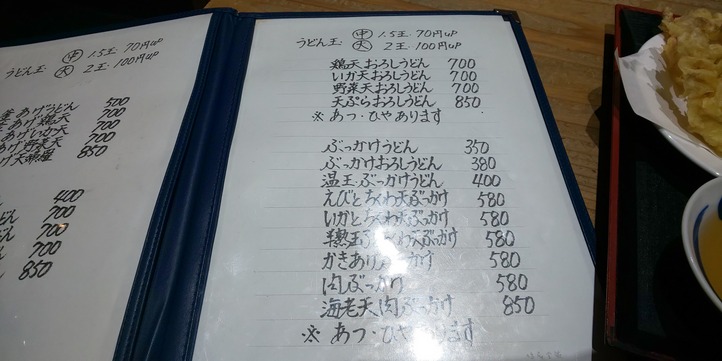 うどん玉 ㊥ 1.5玉 70円UP
㊅ 2玉 100円UP
あげうどん 500
あげ鶏天 700
あげいか天 700
げ野菜天 700
850
400
どん 700
どん 700
ん 700
850
うどん玉 ㊥ 1.5玉 70円UP
大 2玉 100円UP
鶏天おろしうどん 700
いか天おろしうどん 700
野菜天おろしうどん 700
天ぷらおろしうどん 850
※あつ・ひやあります
ぶっかけうどん 350
ぶっかけおろしうどん 380
温玉ぶっかけうどん 400
えびとちくわ天ぶっかけ 580
いかとちくわ天ぶっかけ 580
半熟玉ちくわ天ぶっかけ 580
かきあげ かけ 580
肉ぶっかけ 580
海老天肉ぶっかけ 850
※あつ・ひやあります